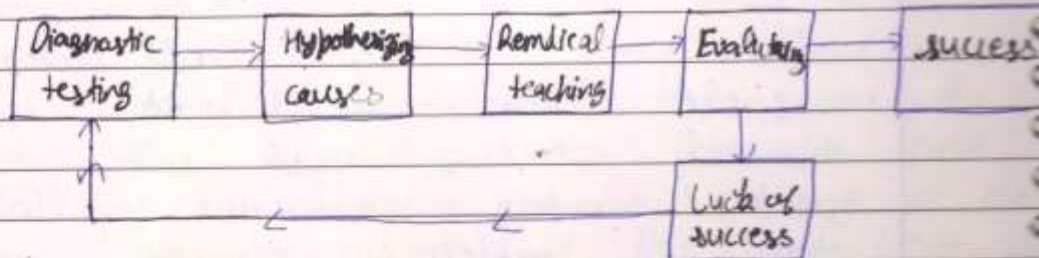 Diagnostic testing
Hypothesizing causes
Remdical teaching
Evaluting
success
Luck of success